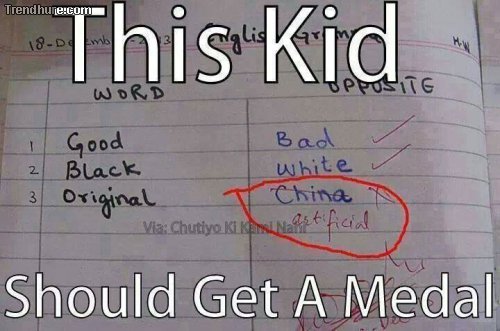 Trendhure.com
This Kid
18-Decemb 13 English Grammar H.W
WORD OPPOSITE
1 Good Bad
2 Black White
3 Original China
artificial
Via: Chutiyo Ki Kami Nahi
Should Get A Medal